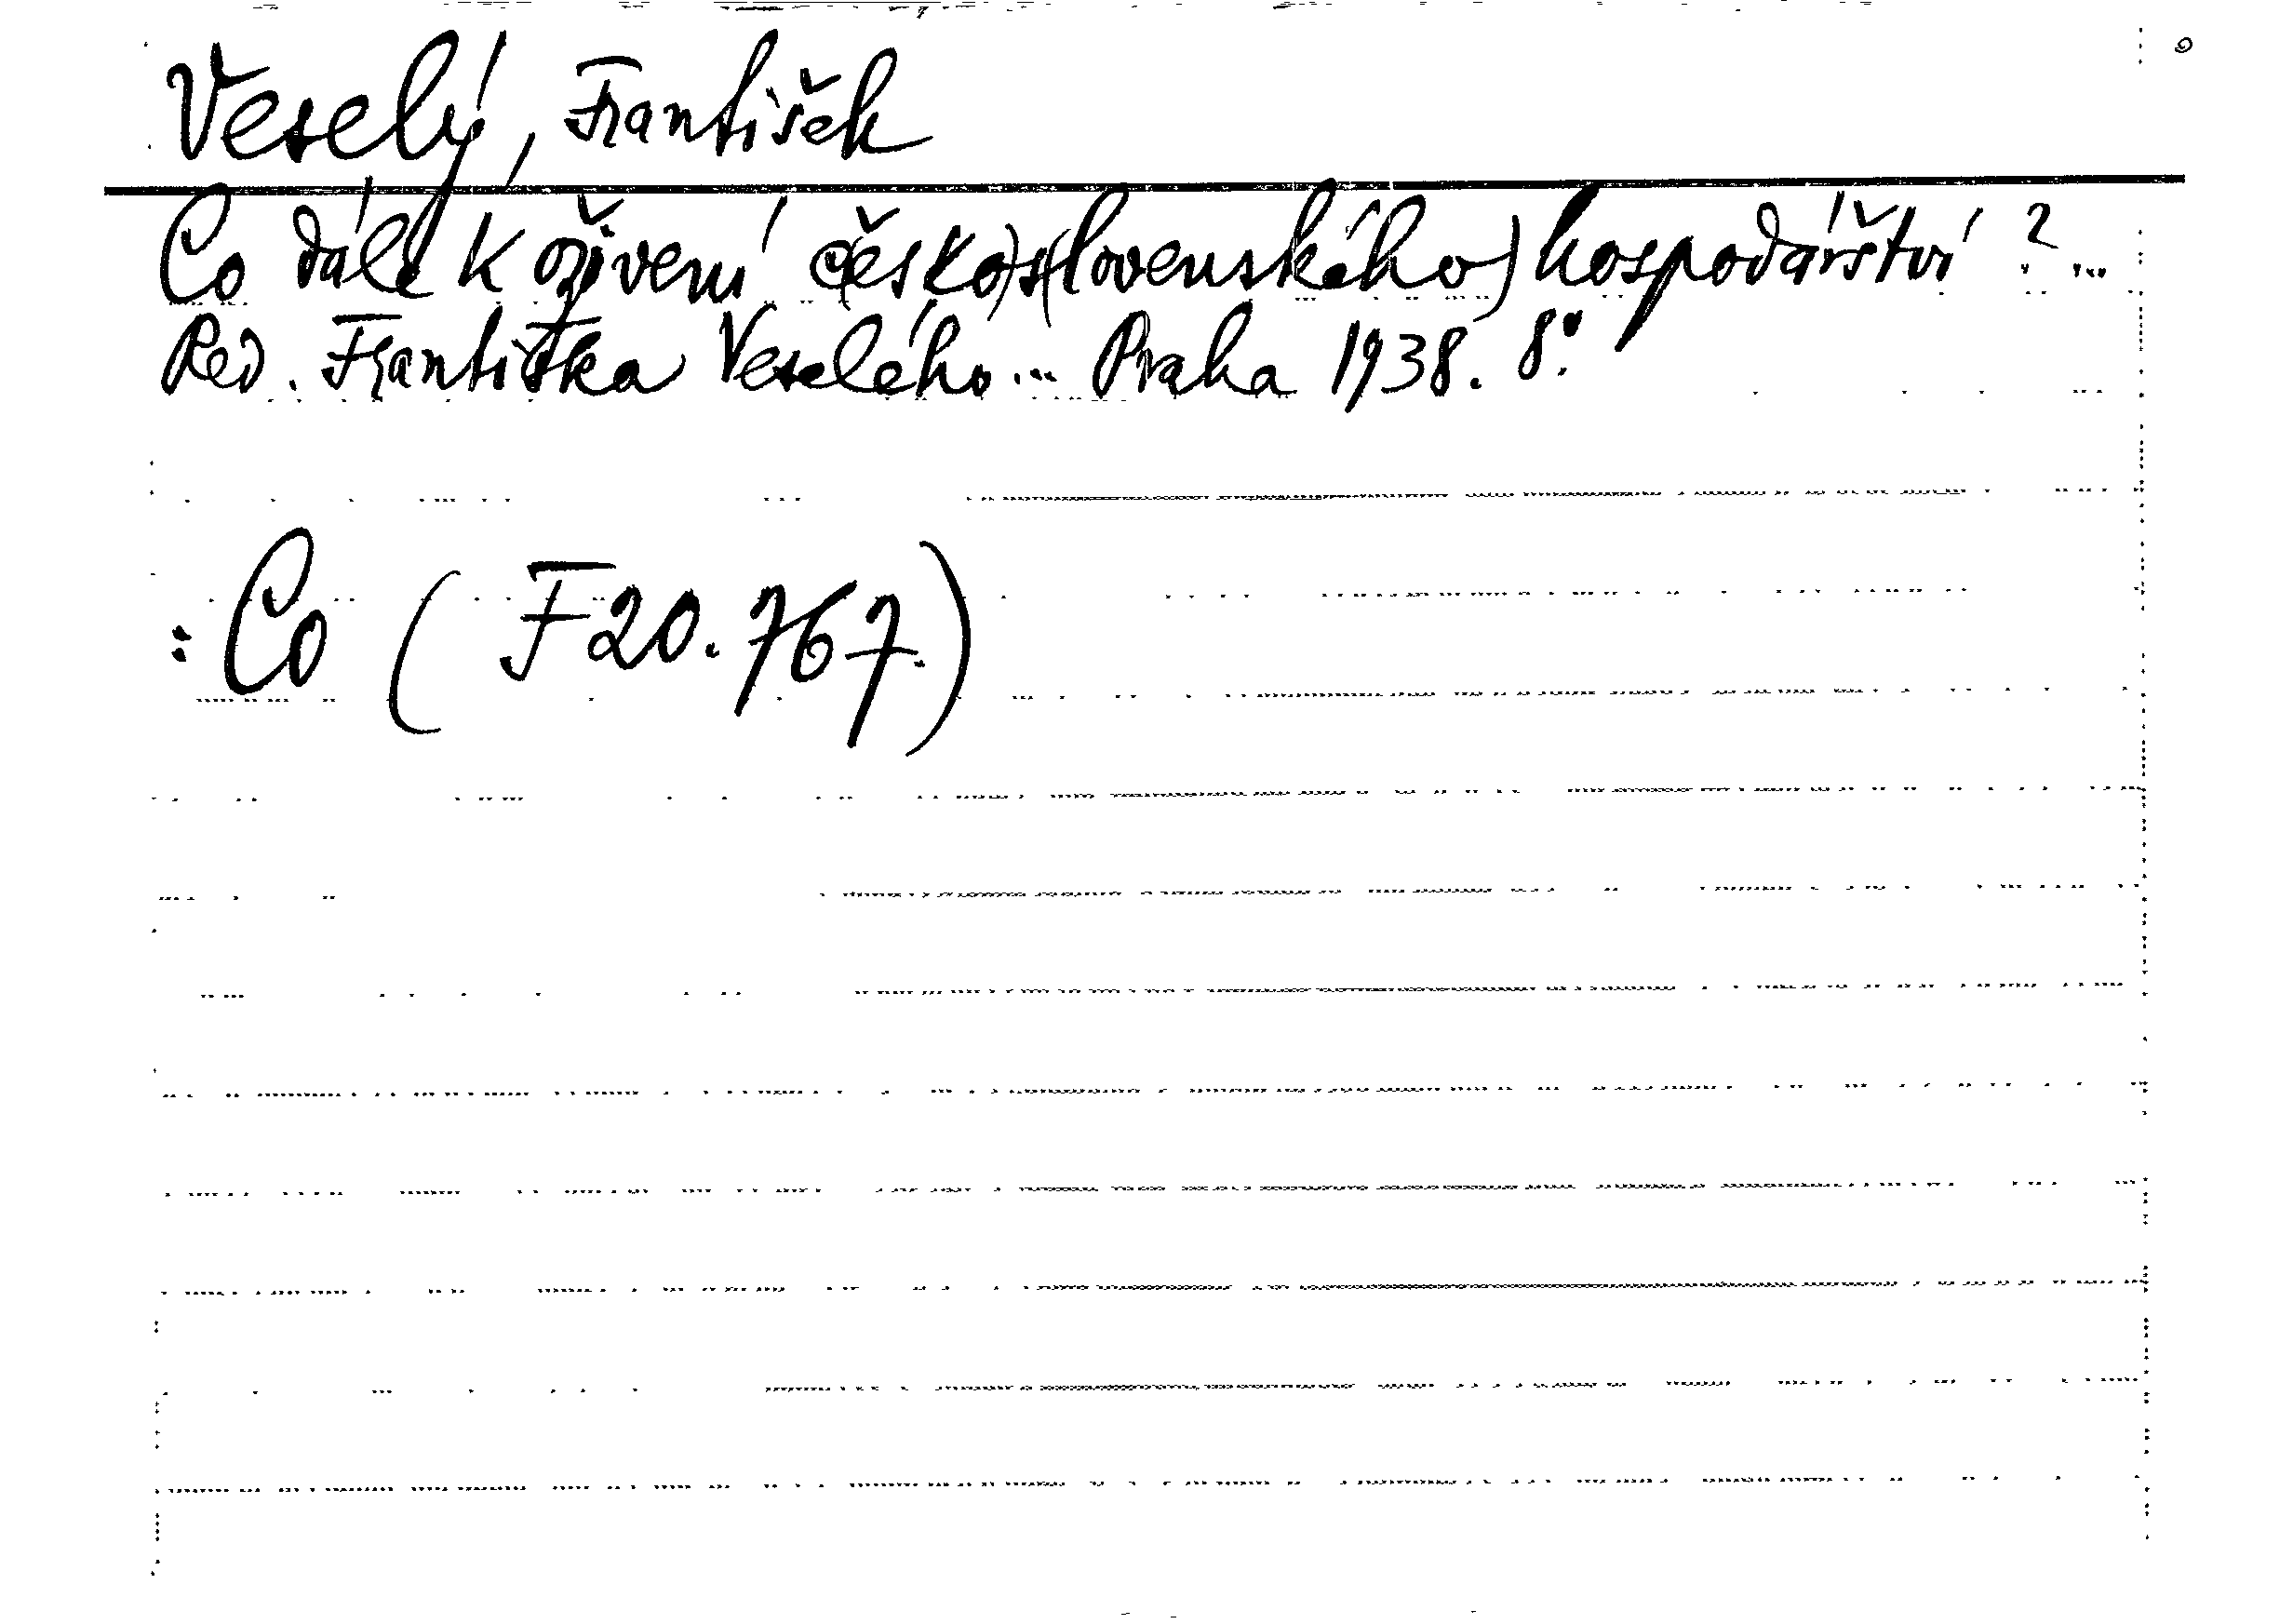 Veselý, František
Co dále k oživení č(esko)s(lovenského) hospodářství? ...
Red. Františka Veselého ... Praha 1938. 8°.
: Co ( F20.767.)